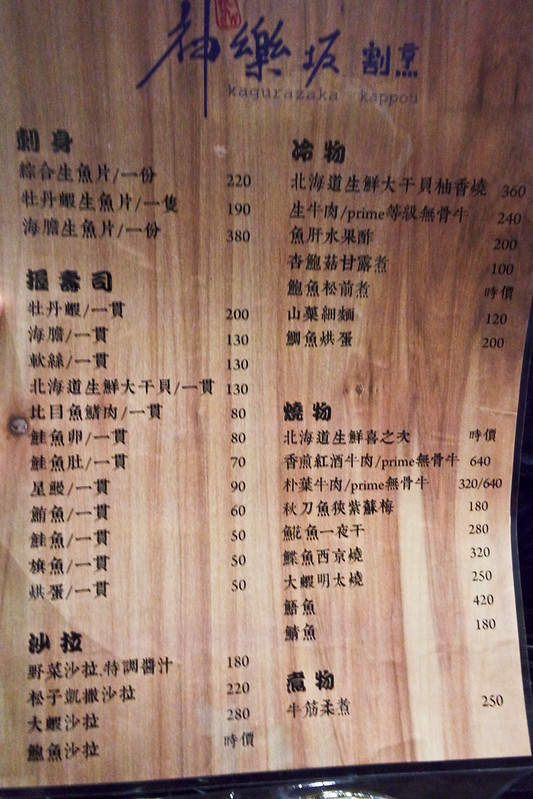 神樂坂 割烹
kagurazaka kappou
刺身
綜合生魚片/一份 220
牡丹蝦生魚片/一隻 190
海膽生魚片/一份 380
握壽司
牡丹蝦/一貫 200
海膽/一貫 130
軟絲/一貫 130
北海道生鮮大干貝/一貫 130
比目魚鰭肉/一貫 80
鮭魚卵/一貫 80
鮭魚肚/一貫 70
星鰻/一貫 90
鮪魚/一貫 60
鮭魚/一貫 50
旗魚/一貫 50
烘蛋/一貫 50
沙拉
野菜沙拉.特調醬汁 180
松子凱撒沙拉 220
大蝦沙拉 280
鮑魚沙拉 時價
冷物
北海道生鮮大干貝柚香燒 360
生牛肉/prime等級無骨牛 240
魚肝水果酢 200
杏鮑菇甘露煮 100
鮑魚松前煮 時價
山藥細麵 120
鯛魚烘蛋 200
燒物
北海道生鮮喜之次 時價
香煎紅酒牛肉/prime無骨牛 640
朴葉牛肉/prime無骨牛 320/640
秋刀魚狹紫蘇梅 180
魚一夜干 280
鰈魚西京燒 320
大蝦明太燒 250
魚 420
鯖魚 180
煮物
牛筋柔煮 250